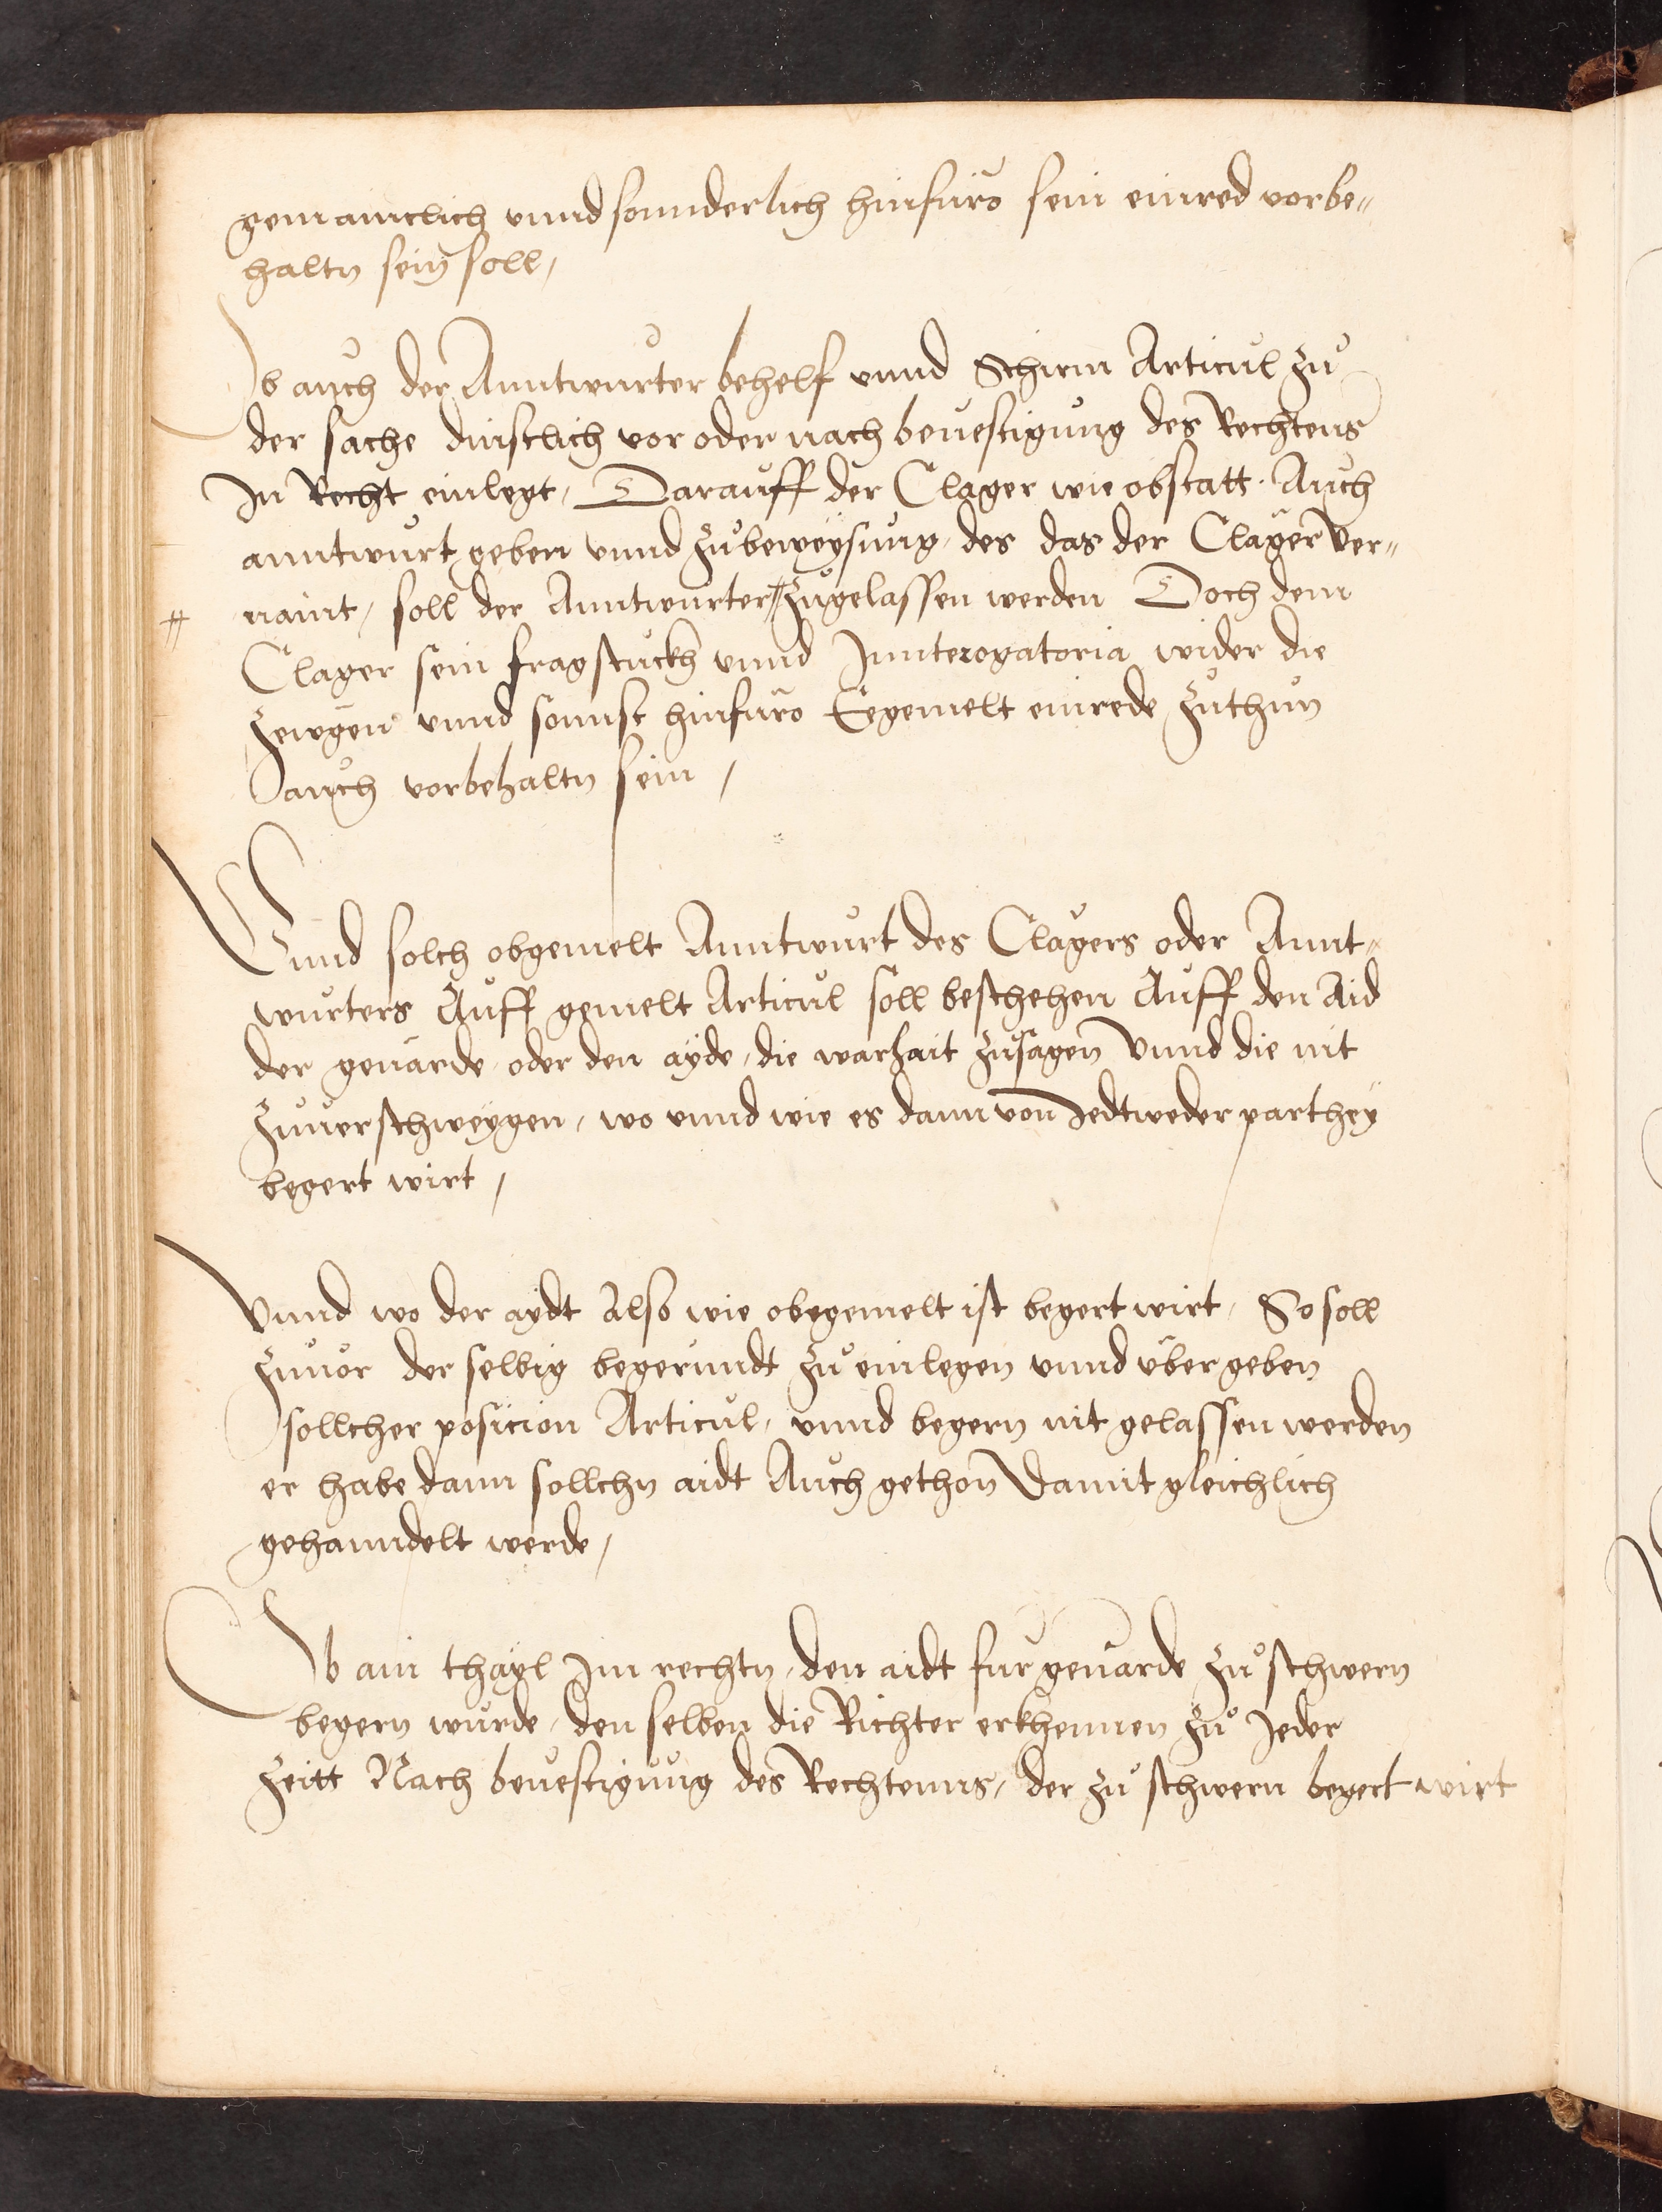 gemainclich vnnd sonnderlich hinfüro sein einred vorbe„
haltn sein soll,
Ob auch der Anntwurter behelf vnnd Schirm Articul zů
der sache dinstlich vor oder nach beuestigung des Rechtens
In Recht einlegt, Darauff der Clager wie obstatt. Auch
anntwurt geben vnnd zůbeweÿsung, des das der Clager Ver„
# naint, soll der Anntwurter # zůgelassen werden Doch dem
Clager sein fragstuckh vnnd Innterogatoria wider die
Zewgen vnnd sonnst hinfüro Eegemelt einrede zůthun
auch vorbehaltn sein,
Vnnd solch obgemelt Anntwurt des Clagers oder Annt„
wurters Auff gemelt Articul soll beschehen Auff den Aid
der geuarde, oder den ayde, die warhait zůsagen Vnnd die nit
zůuerschweÿgen, wo vnnd wie es dann von Jedtweder parthey
begert wirt,
Vnnd wo der aydt Also wie obgemelt ist begert wirt, So soll
zůuor der selbig begerundt zů einlegen vnnd ubergeben
sollcher posicion Articul, vnnd begern nit gelassen werden
er habe dann sollchn aidt Auch gethon Damit gleichlich
gehanndelt werde,
Ob ain thayl Im rechtn, den aidt fur geuarde zů schwern
begern wurde, den selben die Richter erkhennen zů Jeder
Zeitt Nach beuestigung des Rechtenns, der zů schwern begert wirt